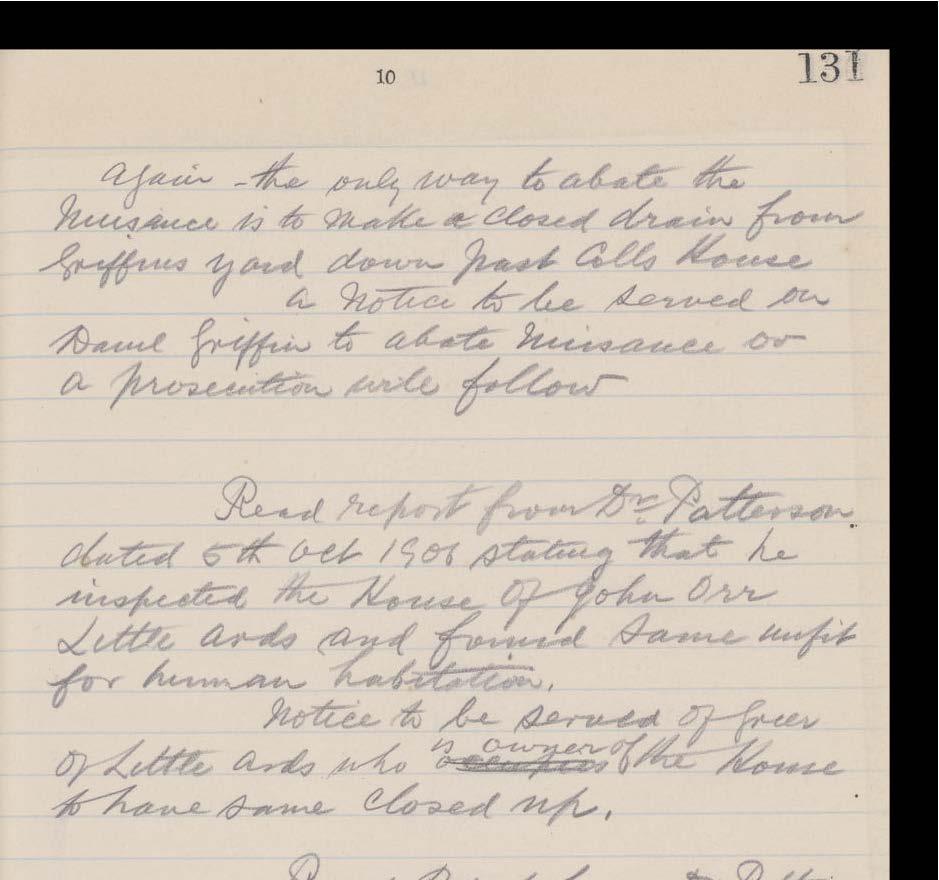 10
131
Again - the only way to abate the
Nuisance is to make a closed drain from
Griffins yard down past Colls House
a Notice to be served on
Daniel Griffin to abate Nuisance or
a prosecution will follow
Read report from Dr. Patterson
dated 5th Oct 1906 stating that he
inspected the House of John Orr
Little Ards and found same unfit
for human habitation.
Notice to be served of Greer
is owner of
of Little Ards who occupies the House
to have same closed up.